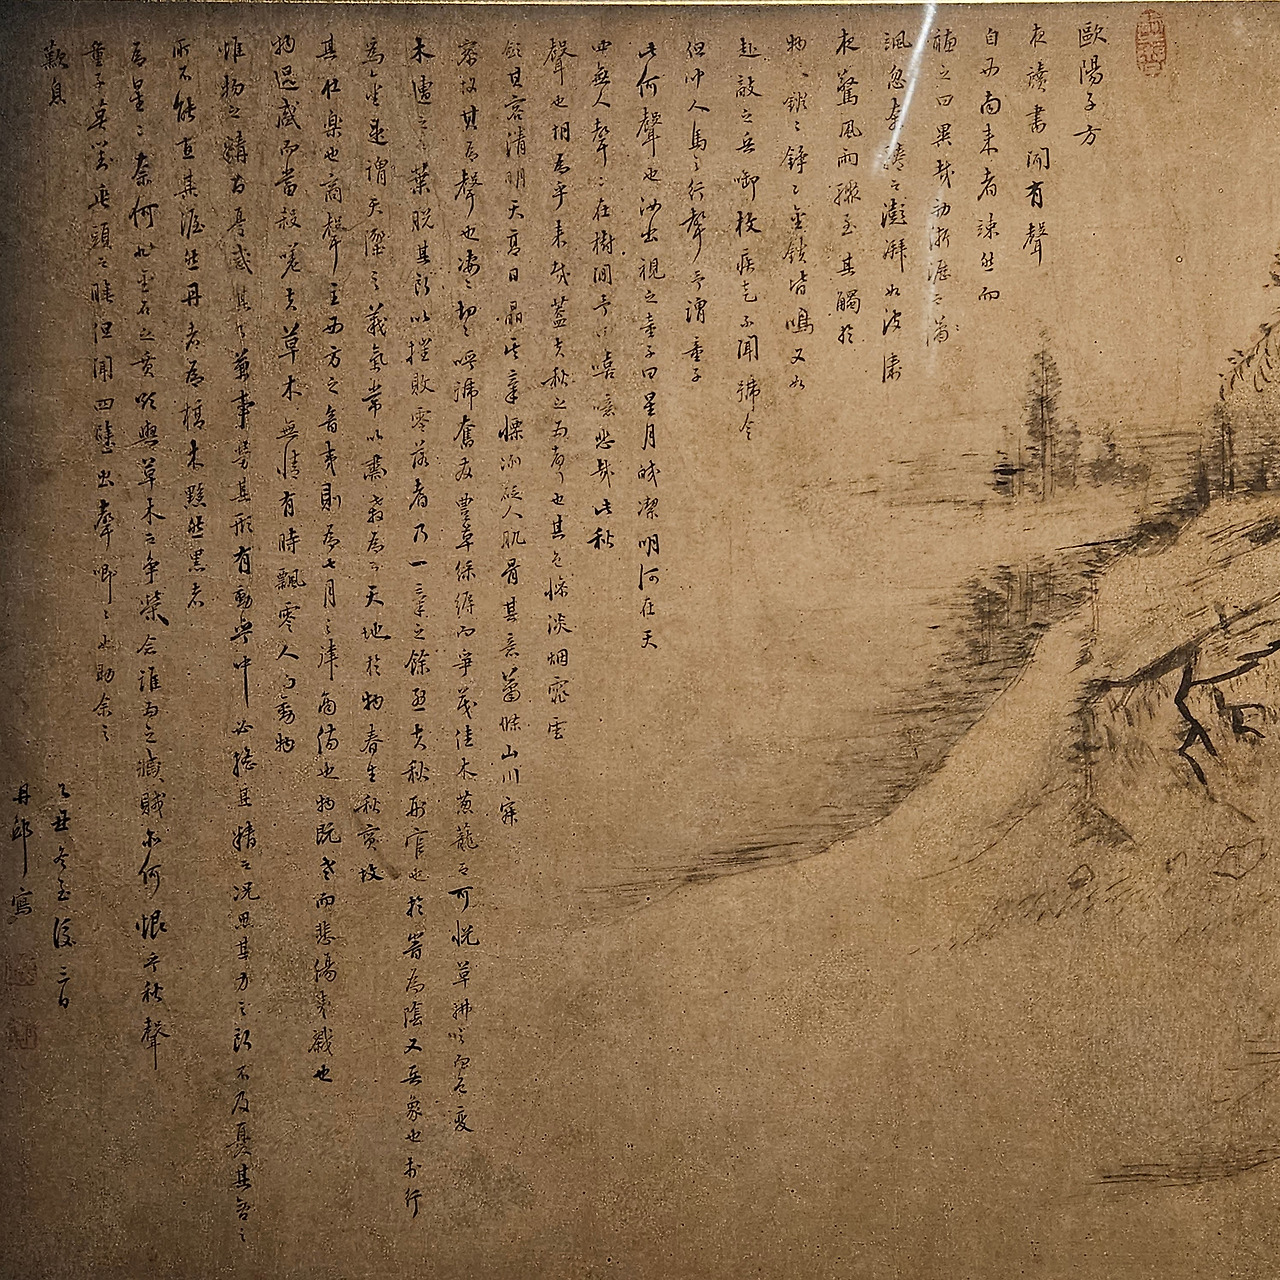 歐陽子方
夜讀書聞有聲
自西南来者悚然而
聽之曰異哉初淅瀝之蕭
颯忽奔騰之澎湃如波濤
夜驚風雨驟至其觸於
物之鏦鏦錚錚金鐵皆鳴又如
赴敵之兵啣枚疾走不聞號令
但聞人馬之行聲予謂童子
此何聲也汝出視之童子曰星月皎潔明河在天
四無人聲聲在樹間予曰嘻噫悲哉此秋
聲也胡爲乎来哉蓋夫秋之爲聲也其色慘淡烟霏雲
斂其容清明天高日晶其氣慄冽砭人肌骨其意蕭條山川寂
寥故其爲聲也凄凄切切呼號奮發豊草綠縟而爭茂佳木葱蘢之可悅草拂之而色変
木遭之之葉脫其所以摧敗零落者乃一氣之餘烈夫秋刑官也於時爲陰又兵象也於行
爲金是謂天之義氣常以肅殺爲天地於物春生秋實故
其在樂也商聲主西方之音夷則爲七月之律商傷也物既老而悲傷夷戮也
物過盛而當殺嗟夫草木無情有時飄零人爲動物
惟物之百憂感其心萬事勞其形有動乎中必搖其精之况思其力之所不及憂其智之
所不能宜其渥然丹者爲槁木黟然黑者
爲星星奈何非金石之質欲與草木之爭榮念誰爲之戕賊亦何恨乎秋聲
童子莫對垂頭之睡但聞四壁虫聲唧唧如助余之
歎息
乙丑冬至後三日
丹邱寫